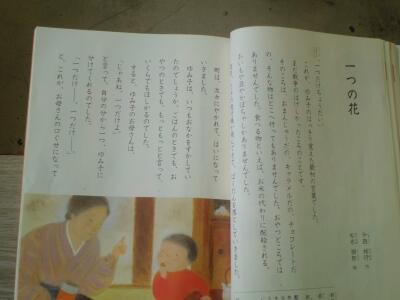 一つの花
「一つだけちょうだい。」
これが、ゆみ子のはっきり覚えた最初の言葉でした。
まだ戦争のはげしかったころのことです。
そのころは、おまんじゅうだの、キャラメルだの、チョコレートだ
の、そんな物はどこへ行ってもありませんでした。おやつどころでは
ありませんでした。食べる物といえば、お米の代わりに配給される、
おいもや豆やかぼちゃしかありませんでした。
町は、次々にやかれて、はいになって
いきました。
ゆみ子は、いつもおなかをすかしてい
たのでしょうか。ごはんのときでも、お
やつのときでも、もっともっとと言って、
いくらでもほしがるのでした。
すると、ゆみ子のお母さんは、
「じゃあね、一つだけよ。」
と言って、自分の分から一つ、ゆみ子に
分けてくれるのでした。
「一つだけ――。一つだけ――。」
と、これが、お母さんの口ぐせになって